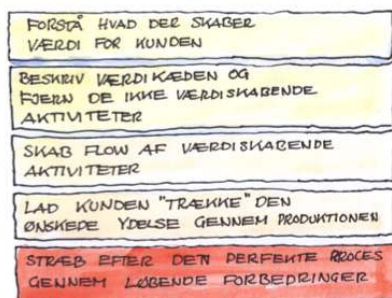 FORSTÅ HVAD DER SKABER
VÆRDI FOR KUNDEN
BESKRIV VÆRDIKÆDEN OG
FJERN DE IKKE VÆRDISKABENDE
AKTIVITETER
SKAB FLOW AF VÆRDISKABENDE
AKTIVITETER
LAD KUNDEN "TRÆKKE" DEN
ØNSKEDE YDELSE GENNEM PRODUKTIONEN
STRÆB EFTER DEN PERFEKTE PROCES
GENNEM LØBENDE FORBEDRINGER